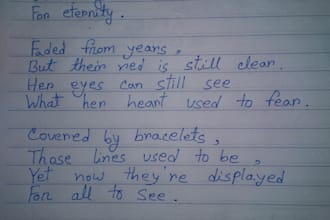 For eternity.
Faded from years,
But their red is still clear.
Her eyes can still see
What her heart used to fear.
Covered by bracelets,
Those lines used to be,
Yet now they're displayed
For all to see.